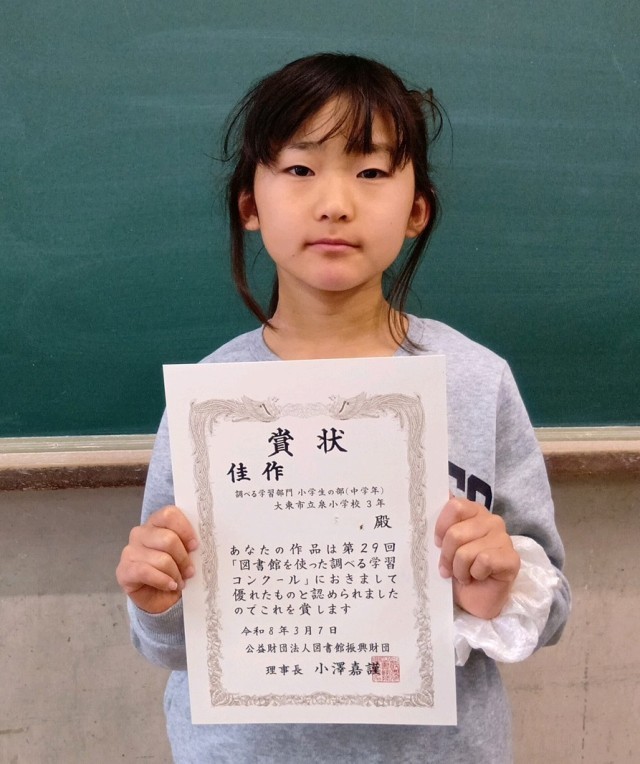 賞状
佳作
調べる学習部門 小学生の部(中学年)
大東市立泉小学校 3年
殿
あなたの作品は第29回
「図書館を使った調べる学習
コンクール」におきまして
優れたものと認められました
のでこれを賞します
令和8年3月7日
公益財団法人図書館振興財団
理事長 小澤嘉謹